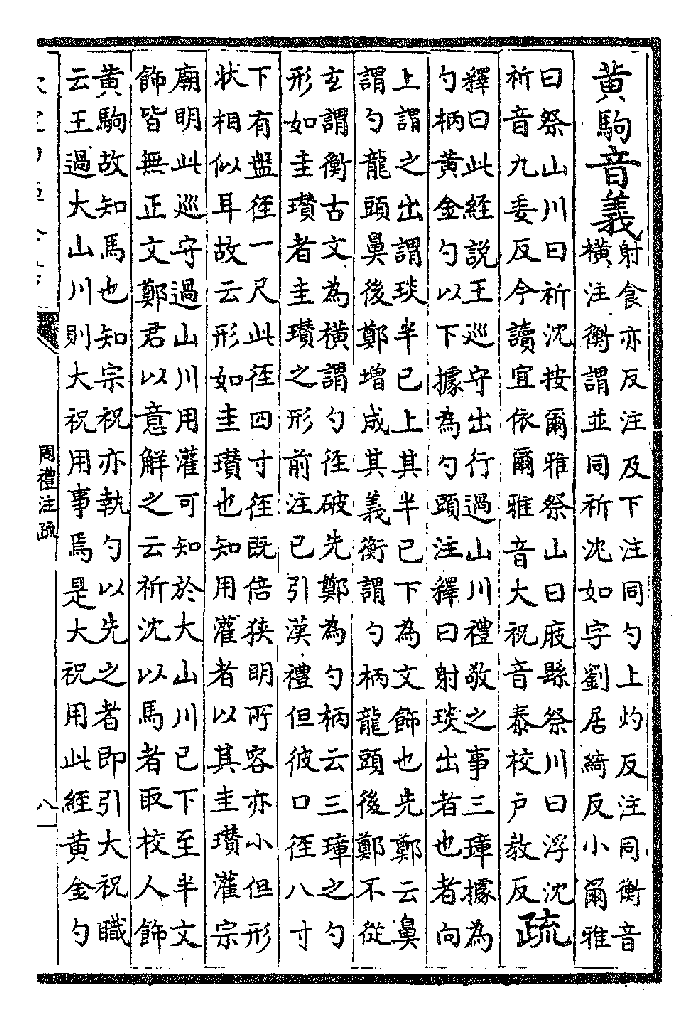 黄駒音義射食亦反注及下注同勺上灼反注同衡音
橫注衡謂並同祈沈如字劉居綺反小爾雅
曰祭山川曰祈沈按爾雅祭山曰庪縣祭川曰浮沈
祈音九委反今讀宜依爾雅音大祝音泰校戶教反疏
釋曰此經說王巡守出行過山川禮敬之事三璋據為
勺柄黄金勺以下據為勺頭注釋曰射琰出者也者向
上謂之出謂琰半已上其半已下為文飾也先鄭云鼻
謂勺龍頭鼻後鄭增成其義衡謂勺柄龍頭後鄭不從
玄謂衡古文為橫謂勺徑破先鄭為勺柄云三璋之勺
形如圭瓚者圭瓚之形前注已引漢禮但彼口徑八寸
下有盤徑一尺此徑四寸徑既倍狹明所容亦小但形
狀相似耳故云形如圭瓚也知用灌者以其圭瓚灌宗
廟明此巡守過山川用灌可知於大山川已下至半文
飾皆無正文鄭君以意解之云祈沈以馬者取校人飾
黄駒故知馬也知宗祝亦執勺以先之者即引大祝職
云王過大山川則大祝用事焉是大祝用此經黄金勺
周禮注疏
八